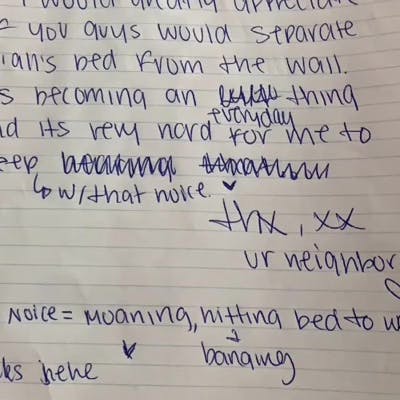 I would greatly appreciate
if you guys would separate
ian's bed from the wall.
s becoming an thing
everyday
nd its very hard for me to
eep
↳ w/that noice.
thx, xx
ur neighbor
NOICE = MOANING, hitting bed to w
banging
ks hehe